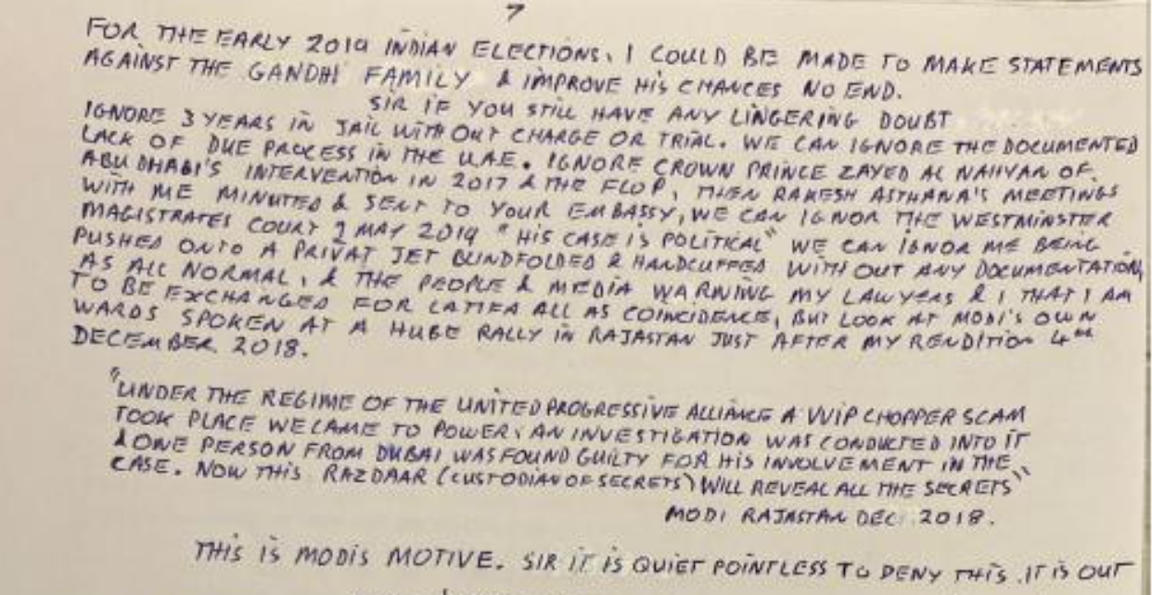 7
FOR THE EARLY 2019 INDIAN ELECTIONS. I COULD BE MADE TO MAKE STATEMENTS
AGAINST THE GANDHI FAMILY & IMPROVE HIS CHANCES NO END.
SIR IF YOU STILL HAVE ANY LINGERING DOUBT
IGNORE 3 YEARS IN JAIL WITHOUT CHARGE OR TRIAL. WE CAN IGNORE THE DOCUMENTED
LACK OF DUE PROCESS IN THE UAE. IGNORE CROWN PRINCE ZAYED AL NAHYAN OF
ABU DHABI'S INTERVENTION IN 2017 & THE FLOP, THEN RAKESH ASTHANA'S MEETINGS
WITH ME MINUTED & SENT TO YOUR EMBASSY, WE CAN IGNOR THE WESTMINSTER
MAGISTRATES COURT 2 MAY 2019 "HIS CASE IS POLITICAL" WE CAN IGNOR ME BEING
PUSHED ONTO A PRIVAT JET BLINDFOLDED & HANDCUFFED WITHOUT ANY DOCUMENTATION,
AS ALL NORMAL, & THE PEOPLE & MEDIA WARNING MY LAWYERS & I THAT I AM
TO BE EXCHANGED FOR LATIFA ALL AS COINCIDENCE, BUT LOOK AT MODI'S OWN
WARDS SPOKEN AT A HUGE RALLY IN RAJASTAN JUST AFTER MY RENDITION 4TH
DECEMBER 2018.
"UNDER THE REGIME OF THE UNITED PROGRESSIVE ALLIANCE A VVIP CHOPPER SCAM
TOOK PLACE WE CAME TO POWER, AN INVESTIGATION WAS CONDUCTED INTO IT
& ONE PERSON FROM DUBAI WAS FOUND GUILTY FOR HIS INVOLVEMENT IN THE
CASE. NOW THIS RAZDAAR (CUSTODIAN OF SECRETS) WILL REVEAL ALL THE SECRETS"
MODI RAJASTAN DEC 2018.
THIS IS MODIS MOTIVE. SIR IT IS QUIET POINTLESS TO DENY THIS. IT IS OUT